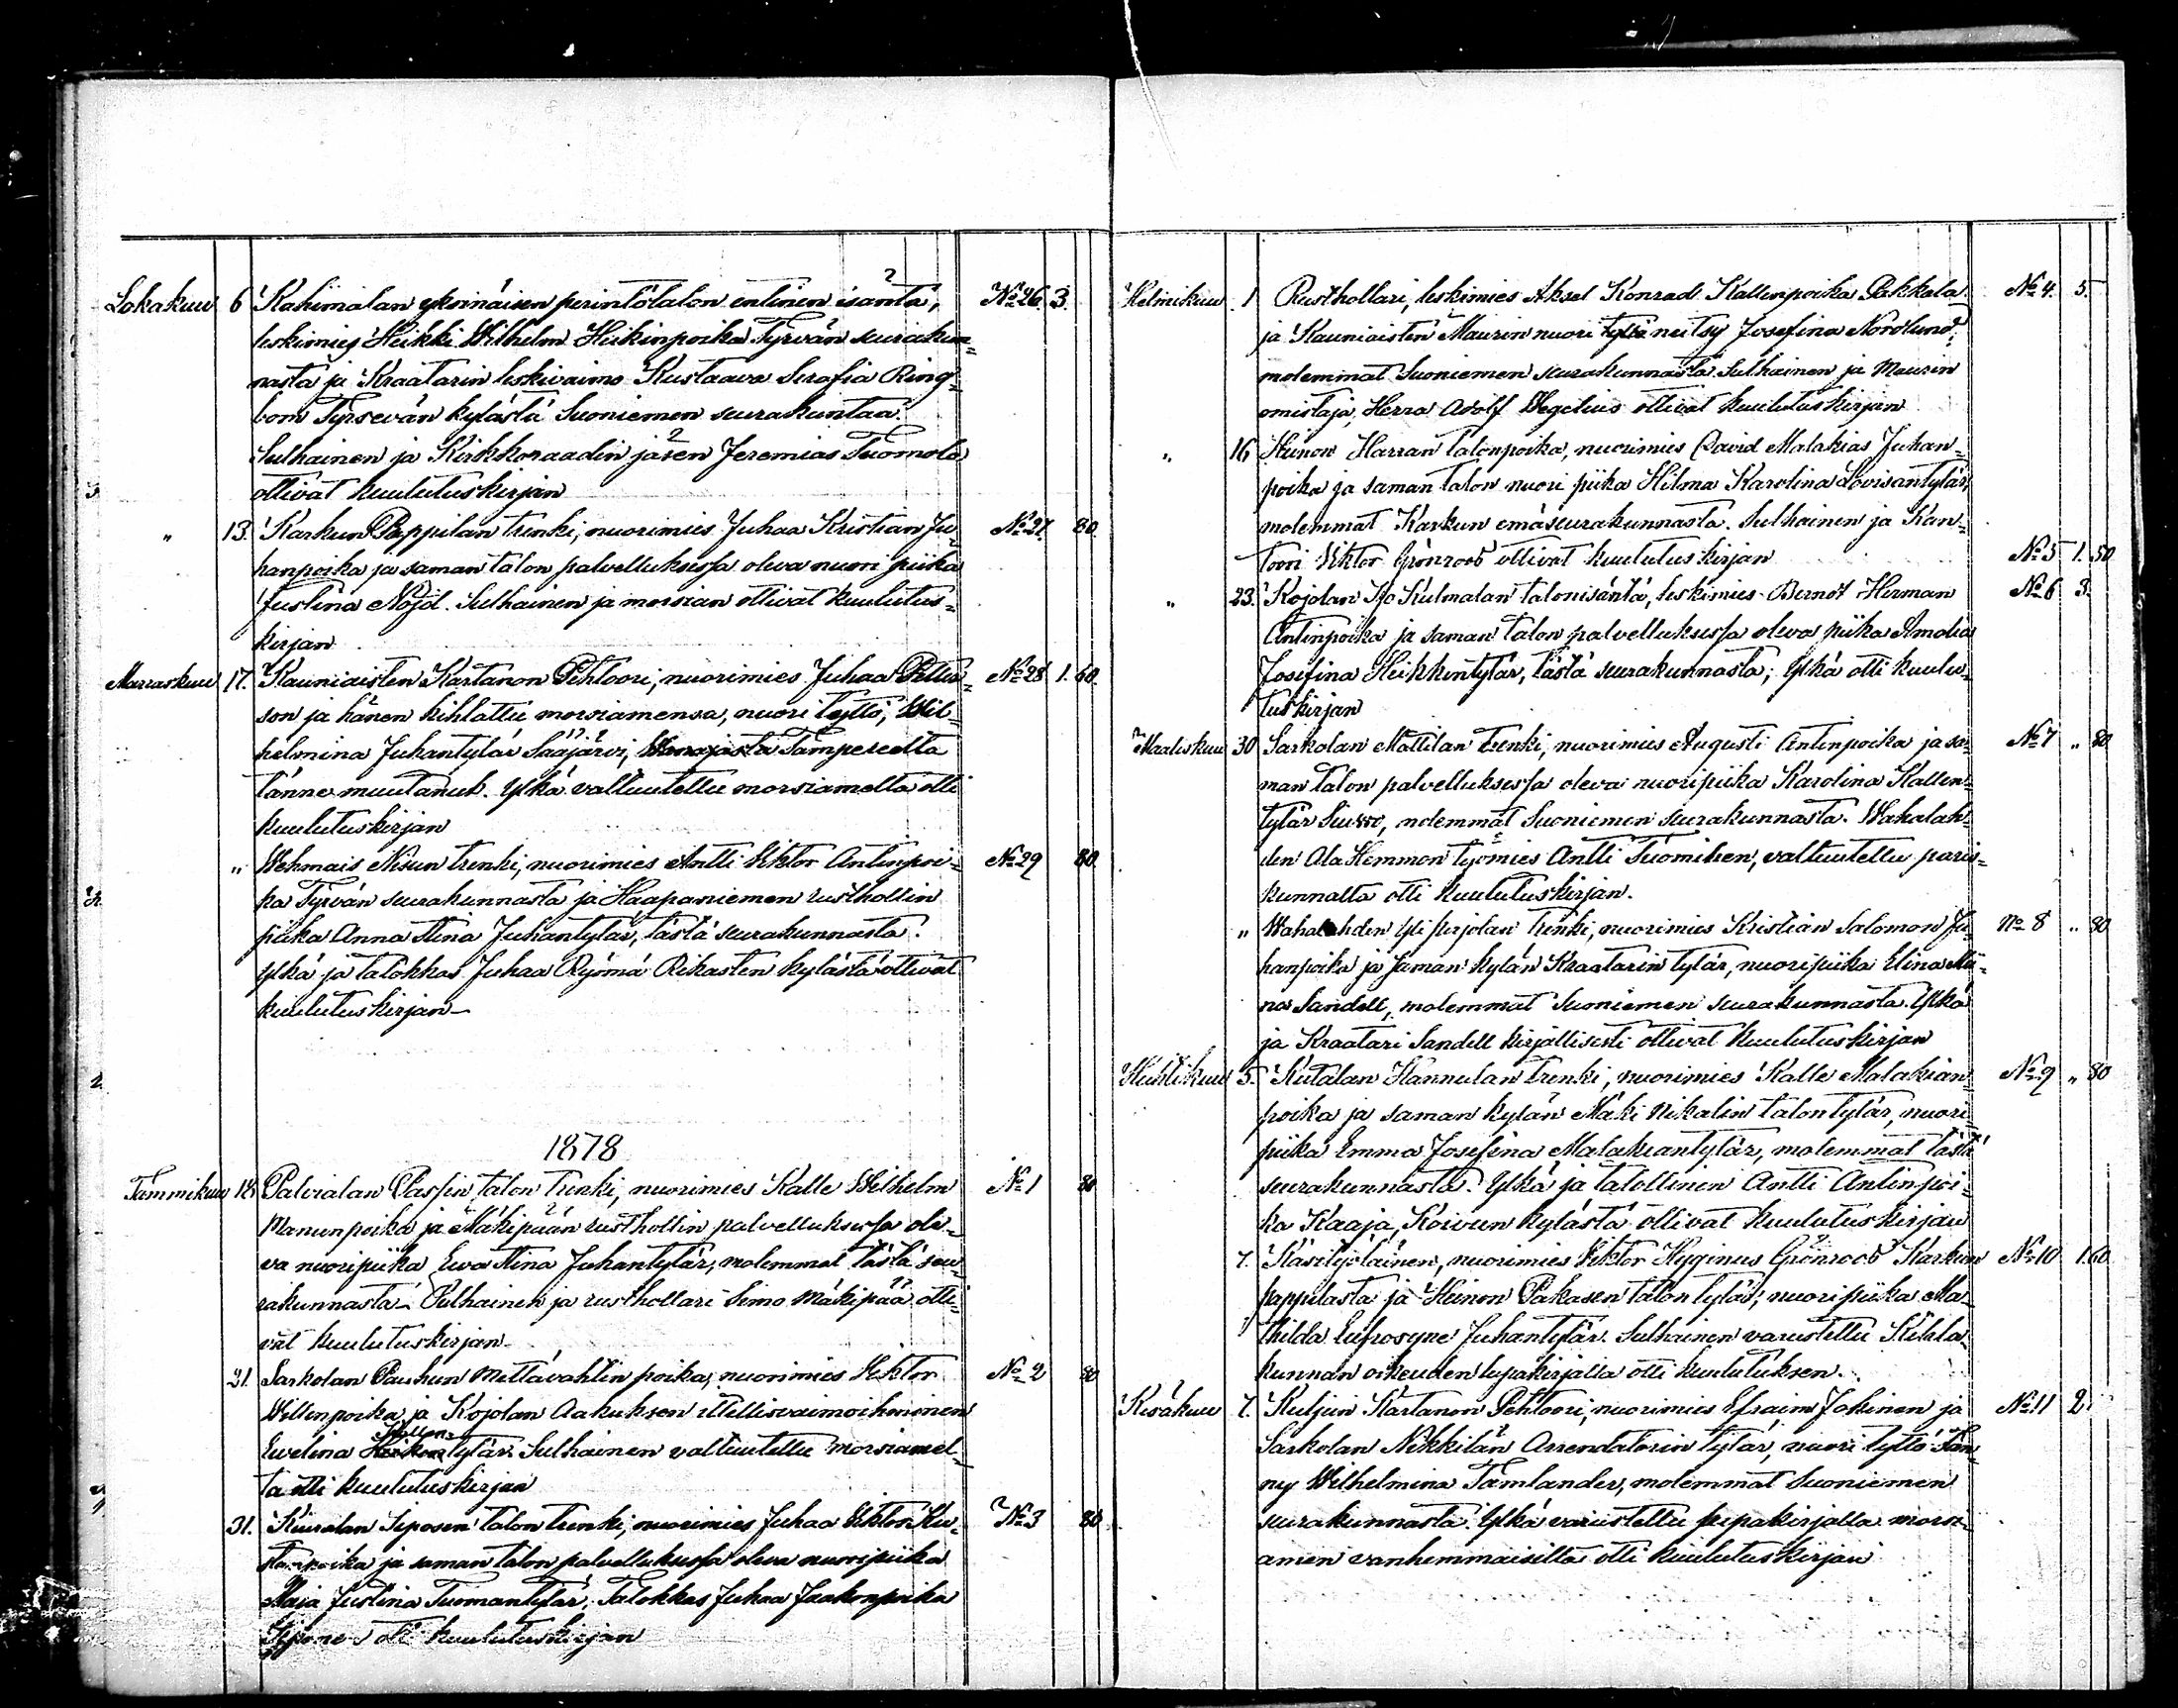 Lokakuu 6 Kahimalan yksinäisen perintötalon entinen isäntä, No 26. 3.
leskimies Heikki Wilhelm Heikinpoika Tyrvän seurakun=
nasta ja Kraatarin leskivaimo Kustaava Serafia Ring=
bom Tyrsevän kylästä Suoniemen seurakuntaa.
Sulhainen ja Kirkkoraadin jäsen Jeremias Tuomola
ottivat kuulutuskirjan
" 13. Karkun Pappilan trenki, nuorimies Juhaa Kristian Ju= No 27. 80.
hanpoika ja saman talon palvelluksessa oleva nuori piika
Justina Nöjd. Sulhainen ja morsian ottivat kuulutus=
kirjan
Marraskuu 17. Kauniaisten Kartanon Pehtoori, nuorimies Juhaa Petters= No 28 1. 60.
son ja hänen kihlattu morsiamensa, nuori tyttö, Wil=
helmina Juhantytär Sääjärvi, Tampereelta
tänne muutanut. Ylkä valtuutettu morsiamelta otti
kuulutuskirjan
" Wehmais Nisun trenki, nuorimies Antti Viktor Antinpoi= No 29 80.
ka Tyrvän seurakunnasta ja Haapaniemen rusthollin
piika Anna Stina Juhantytär, tästä seurakunnasta.
Ylkä ja talokkas Juhaa Ryömä Rikasten kylästä ottivat
kuulutuskirjan
1878
Tammikuu 18 Palvialan Passin talon trenki, nuorimies Kalle Wilhelm No 1 80
Manunpoika ja Mäkipään rusthollin palvelluksessa ole=
va nuoripiika Ewa Stina Juhantytär, molemmat tästä seu=
rakunnasta. Sulhainen ja rusthollari Simo Mäkipää otti=
vat kuulutuskirjan
21. Sarkolan Pauhun Mettävahtin poika, nuorimies Viktor No 2 80
Willenpoika ja Kojolan Aakuksen itellisvaimoihminen
Ewelina Kallen= tytär. Sulhainen valtuutettu morsiamel=
ta otti kuulutuskirjan
31. Kiuralan Siposen talon trenki, nuorimies Juhaa Viktor Ku= No 3 80
stanpoika ja saman talon palvelluksessa oleva nuoripiika
Maia Justina Tuomantytär. Talokkas Juhaa Jaakonpoika
otti kuulutuskirjan
Helmikuu 1 Rusthollari, leskimies Aksel Konrad Kallenpoika Pakkala No 4. 5.
ja Kauniaisten Maurin nuori tyttö neitsy Josefina Nordlund,
molemmat Suoniemen seurakunnasta. Sulhainen ja Maurin
omistaja, Herra Adolf Wegelius ottivat kuulutuskirjan
" 16 Heinon Harran talonpoika, nuorimies David Malakias Juhan=
poika ja saman talon nuori piika Hilma Karolina Lovisantytär,
molemmat Karkun emäseurakunnasta. Sulhainen ja Kan=
toori Viktor Grönroos ottivat kuulutuskirjan No 5 1. 50
" 23. Kojolan Iso Kulmalan talonisäntä, leskimies Bernot Herman No 6 3.
Antinpoika ja saman talon palvelluksessa oleva piika Amalia
Josefina Heikkintytär, tästä seurakunnasta; Ylkä otti kuulu=
tuskirjan
Maaliskuu 30 Sarkolan Mattilan trenki, nuorimies Augusti Antinpoika ja sa= No 7 " 80
man talon palvelluksessa oleva nuoripiika Karolina Kallen=
tytär molemmat Suoniemen seurakunnasta. Wahalah=
den Ala Hemmon työmies Antti Tuominen, valtuutettu paris=
kunnalta otti kuulutuskirjan.
" Wahalahden Yli Pirjolan trenki, nuorimies Kristian Salomon Ju= No 8 " 80
hanpoika ja saman kylän Kraatarin tytär, nuoripiika Elina Mii=
na Sandell, molemmat Suoniemen seurakunnasta. Ylkä
ja Kraatari Sandell kirjallisesti ottivat kuulutuskirjan
Huhtikuu 5. Kutalan Hannulan trenki, nuorimies Kalle Malakian= No 9 " 80
poika ja saman kylän Mäki Nikalin talon tytär, nuori
piika Emma Josefina Malakiantytär, molemmat tästä
seurakunnasta. Ylkä ja talollinen Antti Antinpoi=
ka Kaaja, Koivun kylästä ottivat kuulutuskirjan
7. Käsityöläinen, nuorimies Viktor Hyginus Grönroos Karkun No 10 1.60
pappilasta ja Heinon Pakasen talon tytär, nuoripiika Ma=
thilda Eufrosyne Juhantytär. Sulhainen varustettu Kihla=
kunnan oikeuden lupakirjalla otti kuulutuksen.
Kesäkuu 7. Kuljun Kartanon Pehtoori, nuorimies Efraim Jokinen ja No 11 2.
Sarkolan Nikkilän Arrendatorin tytär, nuori tyttö Fan=
ny Wilhelmina Tamlander, molemmat Suoniemen
seurakunnasta. Ylkä varustettu lupakirjalla morsi=
amen vanhemmaisilta otti kuulutuskirjan